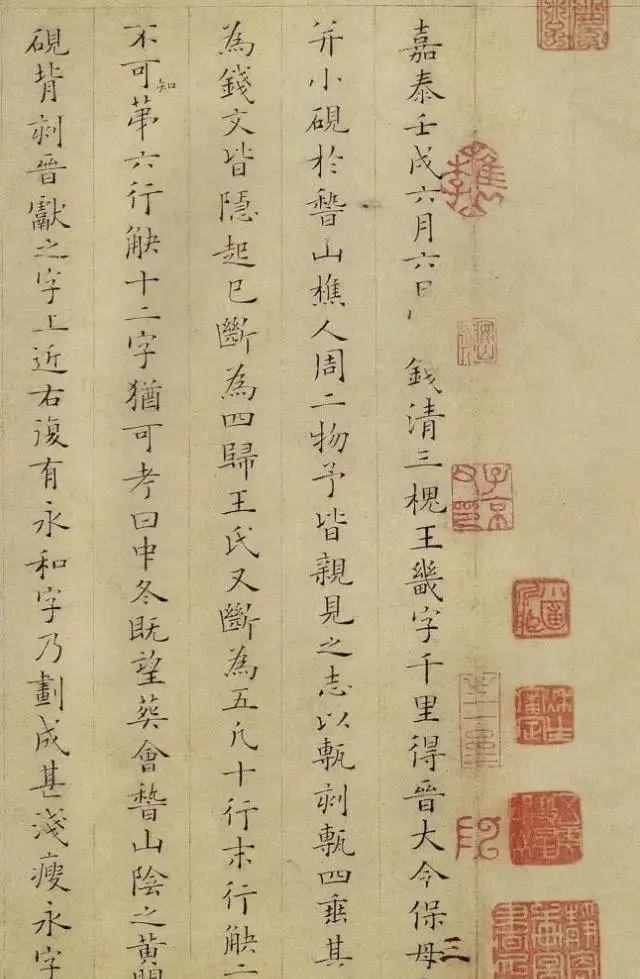 嘉泰壬戌六月六日錢清三槐王畿字千里得晉大令保母
并小硯於嵇山樵人周二物予皆親見之志以甎刻甎四垂其
為錢文皆隱起已斷為四歸王氏又斷為五凡十行末行缺二
不可知第六行缺十二字猶可考曰中冬既望葬會嵇山陰之黃閍
硯背刻晉獻之字上近右復有永和字乃劃成甚淺瘦永字
三
子京